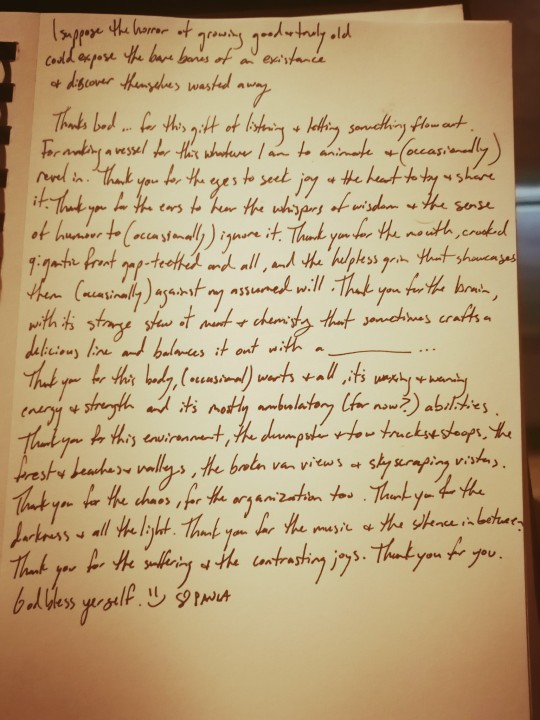 I suppose the horror of growing good & truly old
could expose the bare bones of an existance
& discover themselves wasted away
Thanks bod ... for this gift of listening & letting something flow out.
For making a vessel for this whatever I am to animate & (occasionally)
revel in. Thank you for the eyes to seek joy & the heart to try & share
it. Thank you for the ears to hear the whispers of wisdom & the sense
of humour to (occasionally) ignore it. Thank you for the mouth, crooked
gigantic front gap-teethed and all, and the helpless grin that showcases
them (occasinally) against my assumed will. Thank you for the brain,
with its strange stew of meat & chemistry that sometimes crafts a
delicious line and balances it out with a ________ ...
Thank you for this body, (occasional) warts & all, it's waxing & waning
energy & strength and it's mostly ambulatory (for now?) abilities.
Thank you for this environment, the dumpster & tow trucks & stoops, the
forest & beaches & valleys, the broken van views & skyscraping vistas.
Thank you for the chaos, for the organization too. Thank you for the
darkness & all the light. Thank you for the music & the silence in between
Thank you for the suffering & the contrasting joys. Thank you for you.
God bless yerself. PAULA